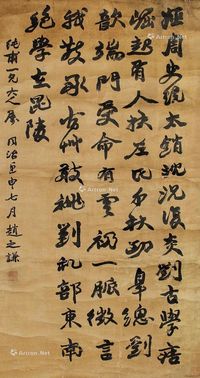 姬周史統太銷沈況復炎劉古學瘖
崛起有人扶左氏千秋功辠總劉
歆端門受命有雲礽一脈微言
我敬承宿艸敢祧劉礼部東南
絕學在毘陵
純甫一兄大人屬 同治壬申七月趙之謙